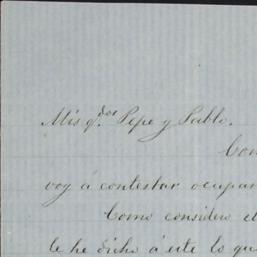 Mis q.dos Pepe y Pablo.
Con
voy á contestar ocupan
Como considero el
le he dicho á este lo qu